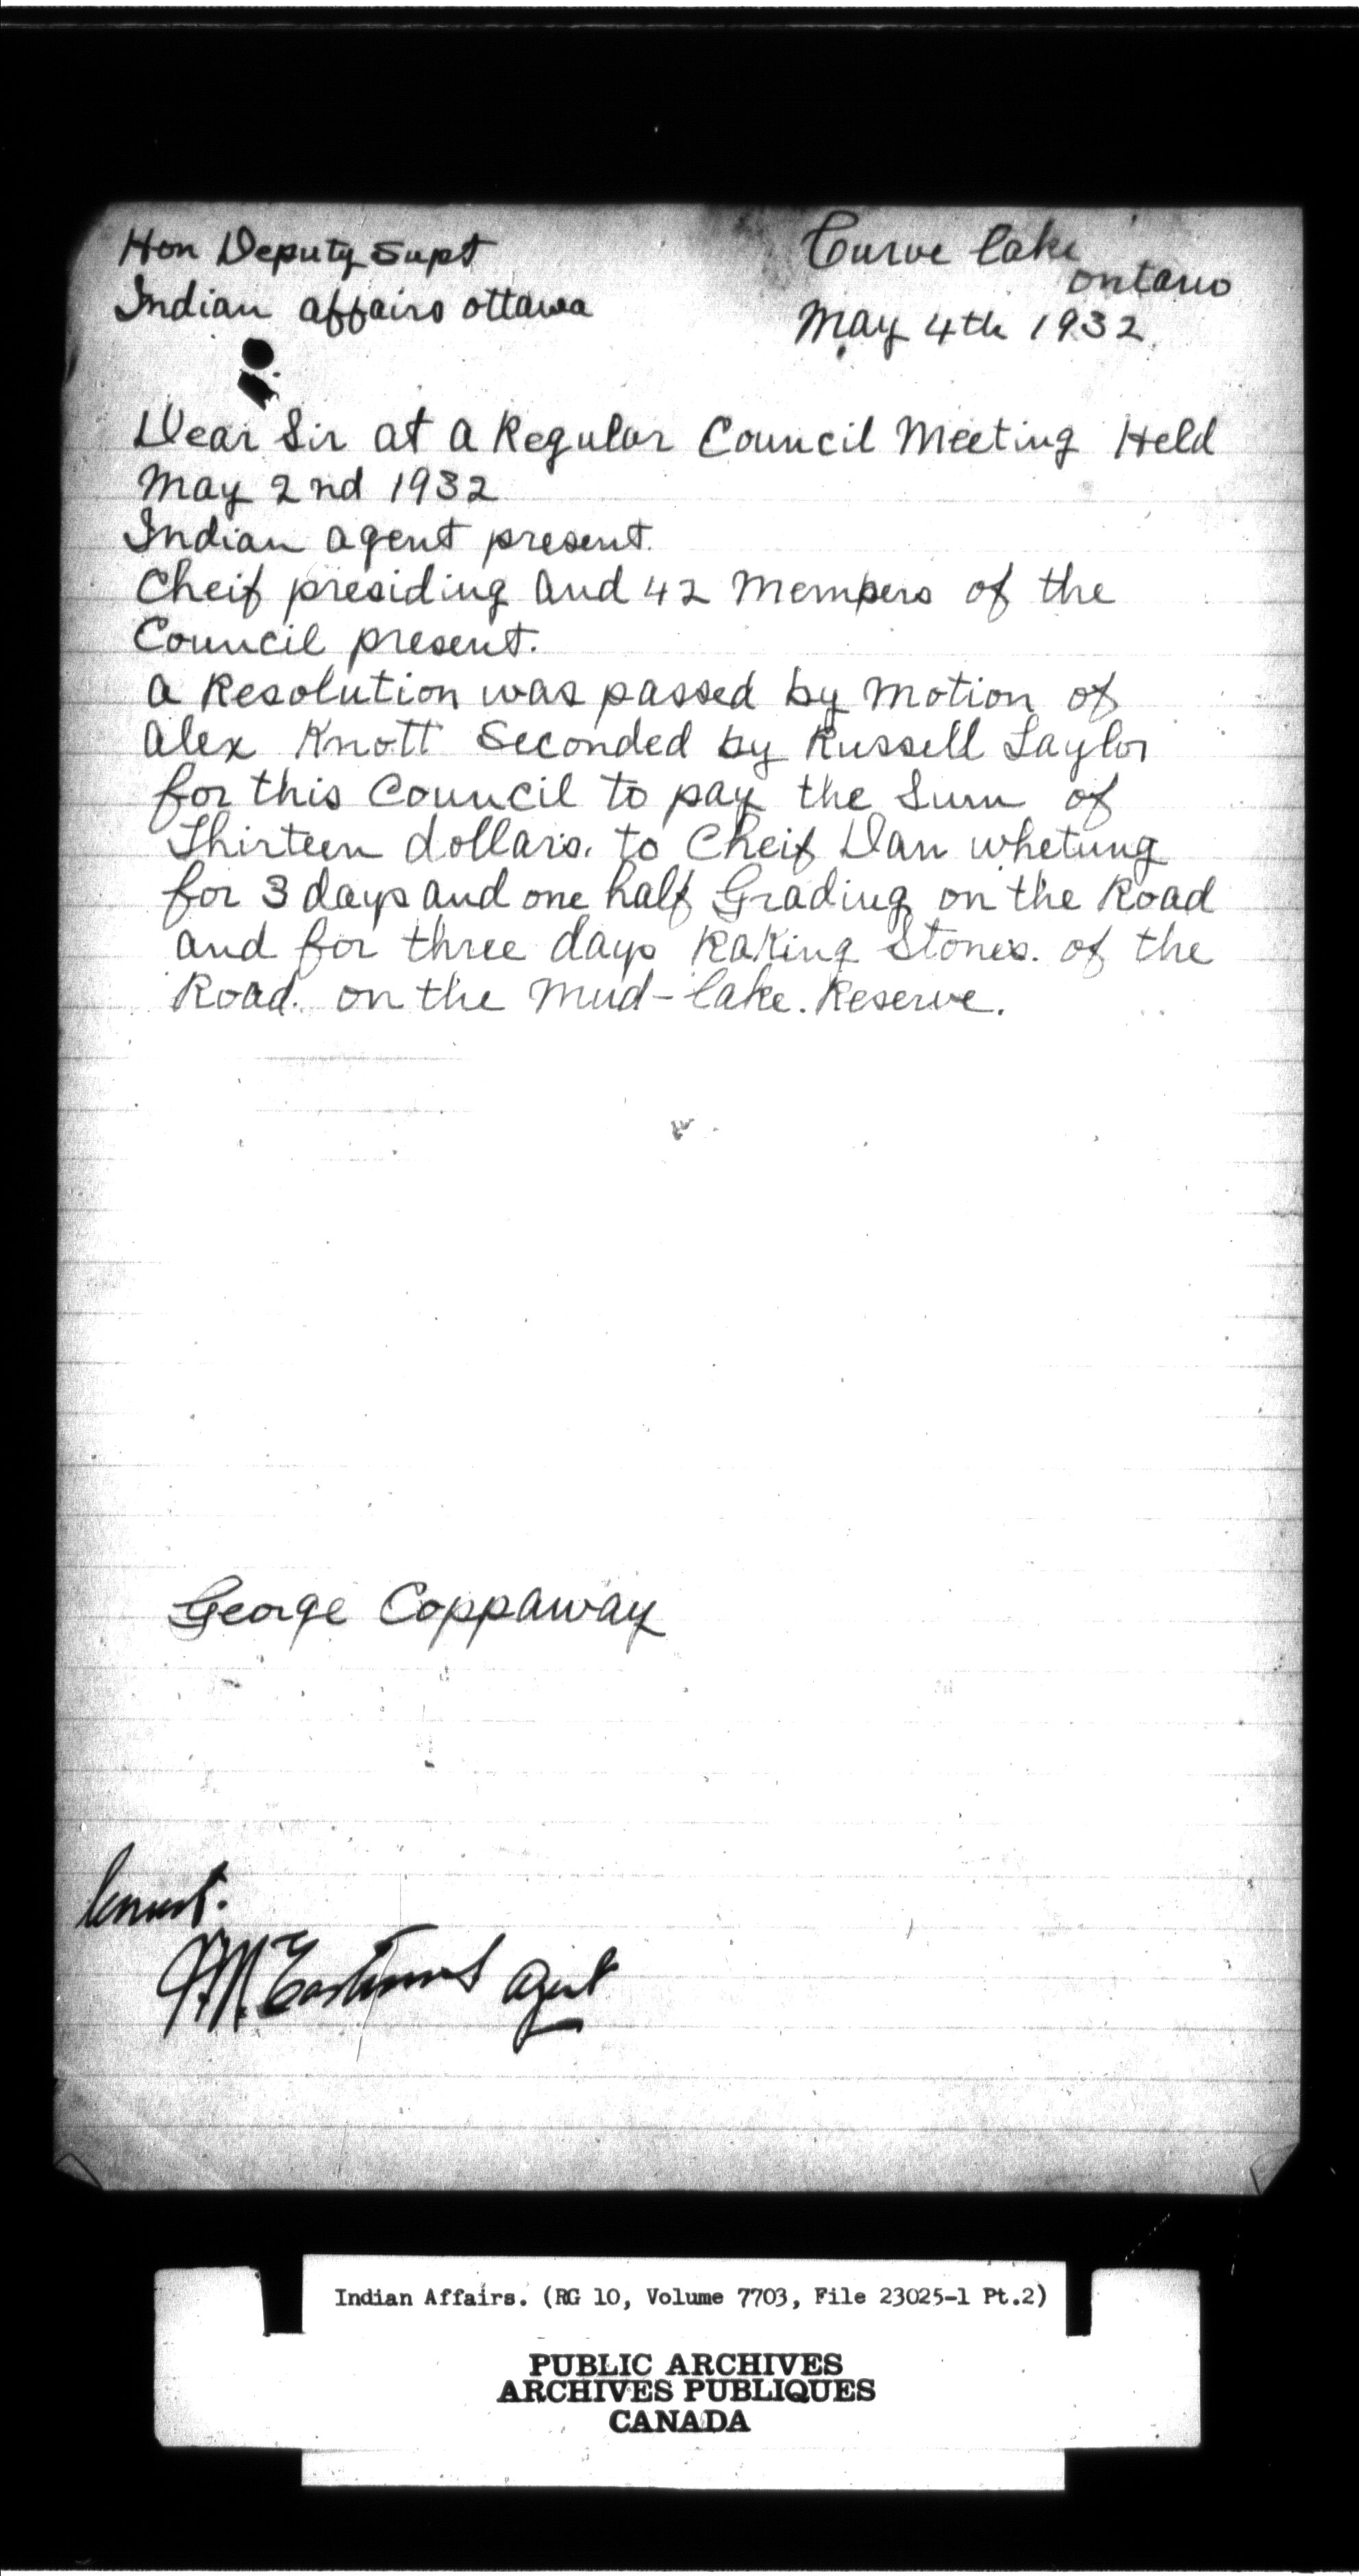 Hon Deputy Supt
Indian affairs ottawa
Curve lake
ontario
May 4th 1932.
Dear Sir at a Regular Council Meeting Held
May 2nd 1932
Indian agent present.
Cheif presiding and 42 Members of the
Council present.
a Resolution was passed by Motion of
Alex Knott Seconded by Russell Taylor
for this Council to pay the Sum of
Thirteen dollars. to Cheif Dan whetung
for 3 days and one half Grading on the Road
and for three days Raking Stones. of the
Road. on the Mud-lake. Reserve.
George Coppaway
Correct.
Agent
Indian Affairs. (RG 10, Volume 7703, File 23025-1 Pt.2)
PUBLIC ARCHIVES
ARCHIVES PUBLIQUES
CANADA